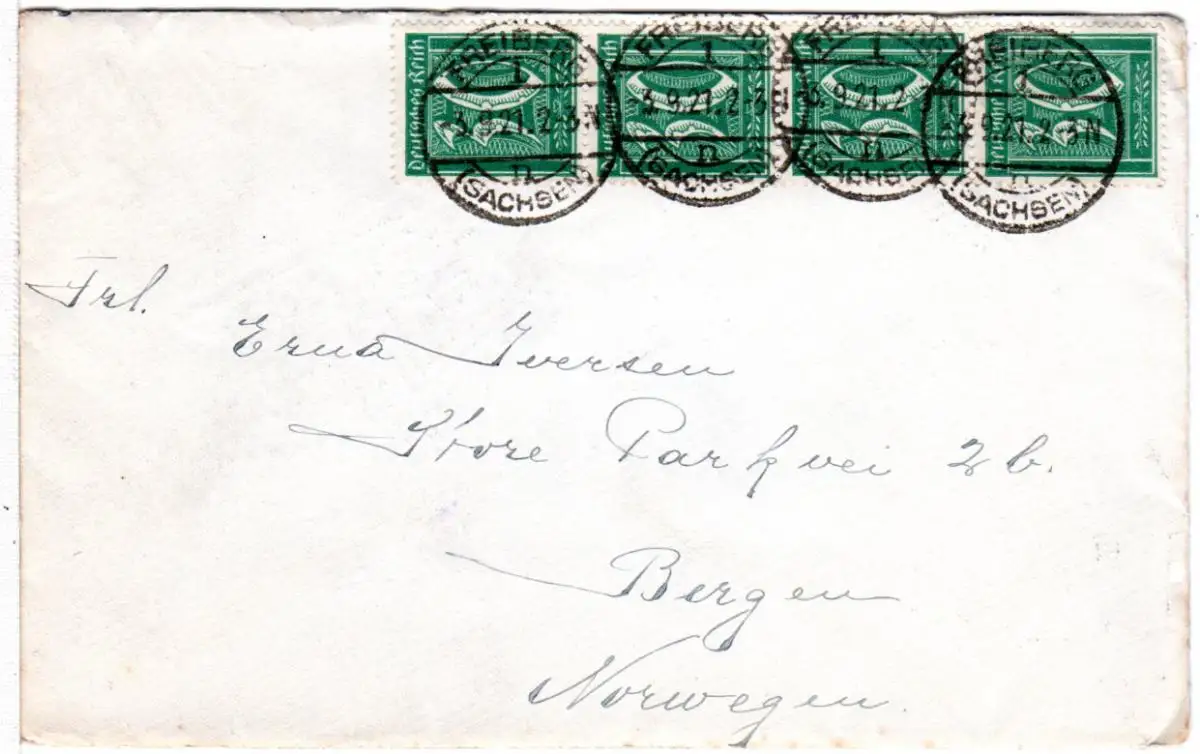 Deutsches Reich Deutsches Reich Deutsches Reich Deutsches Reich
30 30 30 30
FREIBERG FREIBERG FREIBERG FREIBERG
1 1 1 1
3.9.21.2-3N 3.9.21.2-3N 3.9.21.2-3N 3.9.21.2-3N
n n n n
(SACHSEN) (SACHSEN) (SACHSEN) (SACHSEN)
Frl.
Erna Iversen
Store Parkvei 2b.
Bergen
Norwegen.